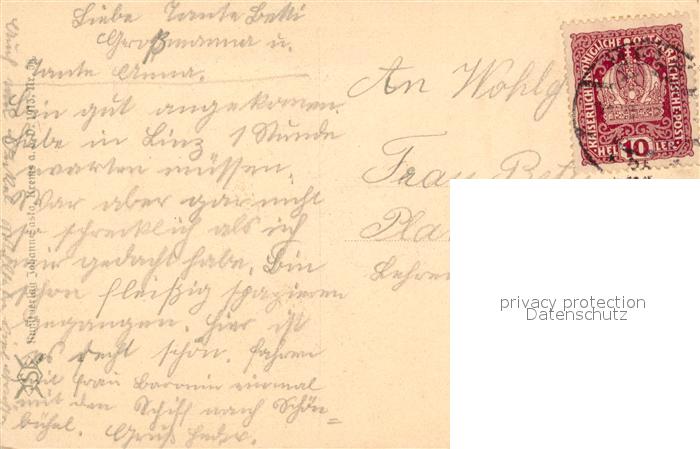 Liebe Tante Betti
Großmama u.
Tante Anna.
Bin gut angekommen.
habe in Linz 1 Stunde
warten müssen.
War aber gar nicht
so schrecklich als ich
mir gedacht habe. Bin
schon fleißig spazieren
gegangen. Hier ist
es recht schön. fahren
mit Frau Baronin einmal
mit den Schiff nach Schön=
bühel. Gruß
An Wohlg
Frau Bet
Pla
Lehre
KAISERLICHE KÖNIGLICHE ÖSTERREICHISCHE POST
HELLER 10
Kunstverlag Johanna Krems a. d. D. 1915. Nr.
privacy protection
Datenschutz